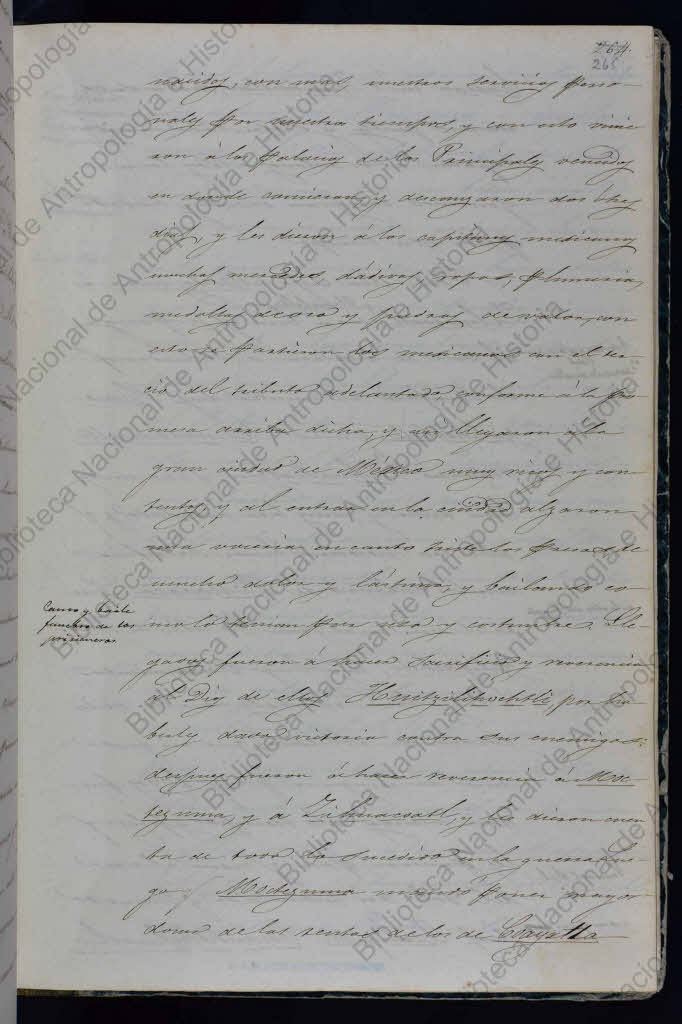 264.
265
nacidos, con mas, nuestros servicios perso-
nales por nuestra tiempos, y con esto vinie-
ron á los Palacios de los Principales vencidos
en donde comieron, y descanzaron dos ó tres
dias, y les dieron á los capitanes mexicanos
muchas mercedes, dádivas, ropas, plumeria,
medallas de oro y piedras de valor, con
esto se partieron los mexicanos con el ter-
cio del tributo adelantado conforme á la pro-
mesa arriba dicha, y así llegaron á la
gran ciudad de México muy ricos y con-
tentos, y al entrar en la ciudad alzaron
una voceria, en canto triste los presos de
mucho dolor y lástima, y bailando co-
mo lo tenian por uso y costumbre. Lle-
gados fueron á hacer sacrificio y reverencia
al Dios de ellos Huitzilihochtli, por ha-
berles dado victoria contra sus enemigos:
despues fueron á hacer reverencia á Moc-
tezuma, y á Zihuacoatl, y les dieron cuen-
ta de todo lo sucedido en la guerra. Lue-
go Moctezuma mandó poner mayor-
domo de las rentas de los de Coayxtla
Canto y baile
funebre de los
prisioneros
Biblioteca Nacional de Antropología e Historia